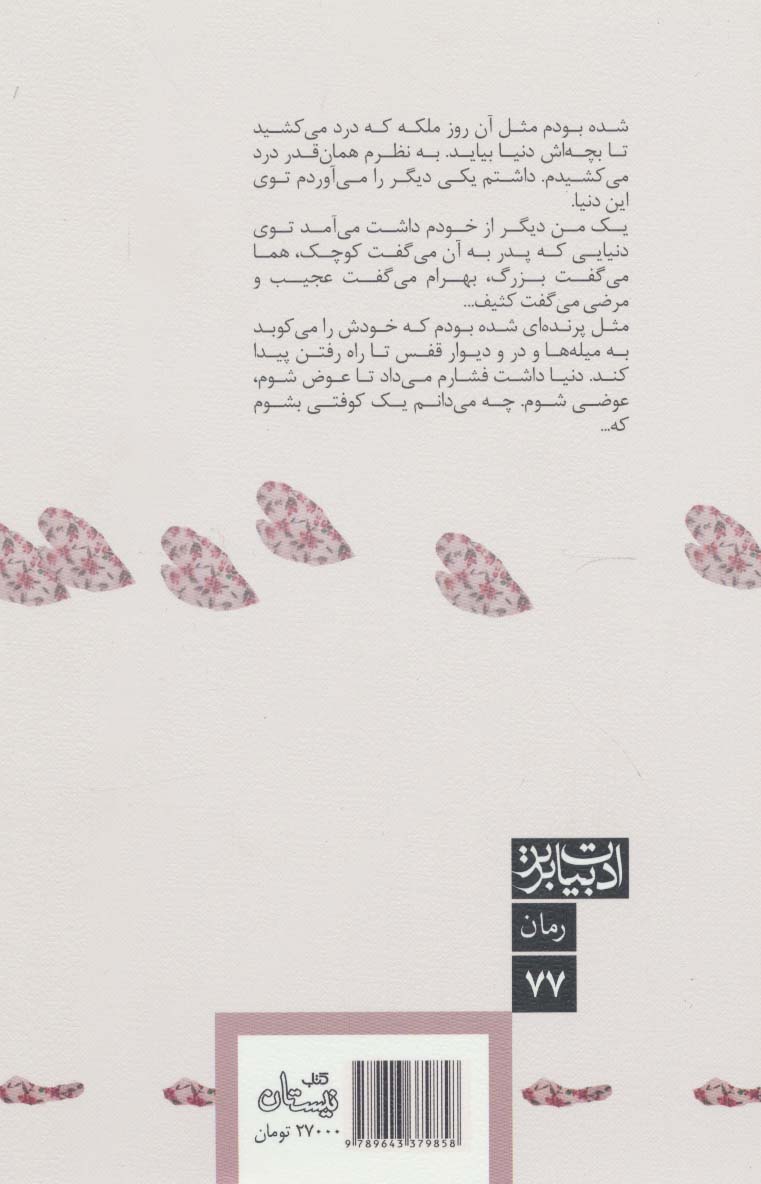 شده بودم مثل آن روز ملکه که درد می‌کشید
تا بچه‌اش دنیا بیاید. به نظرم همان‌قدر درد
می‌کشیدم. داشتم یکی دیگر را می‌آوردم توی
این دنیا.
یک من دیگر از خودم داشت می‌آمد توی
دنیایی که پدر به آن می‌گفت کوچک، هما
می‌گفت بزرگ، بهرام می‌گفت عجیب و
مرضی می‌گفت کثیف...
مثل پرنده‌ای شده بودم که خودش را می‌کوبد
به میله‌ها و در و دیوار قفس تا راه رفتن پیدا
کند. دنیا داشت فشارم می‌داد تا عوض شوم،
عوضی شوم. چه می‌دانم یک کوفتی بشوم
که...
ادبیات برتر
رمان
۷۷
کتاب
نیستان
۲۷۰۰۰ تومان
9 789643 379858